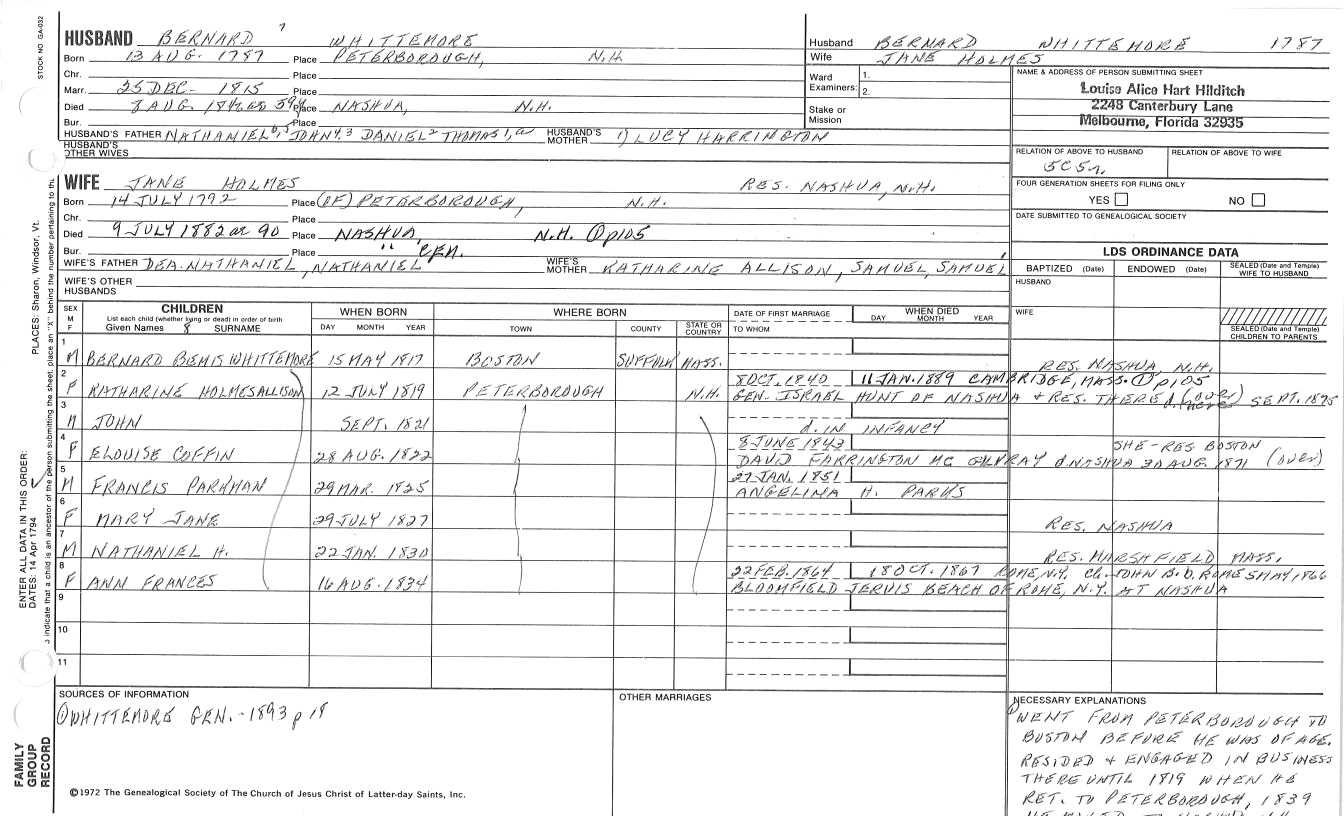 STOCK NO. GA-032
HUSBAND BERNARD 7 WHITTEMORE
Born 13 AUG. 1787 Place PETERBOROUGH, N.H.
Chr. Place
Marr. 25 DEC. 1815 Place
Died Place NASHUA, N.H.
Bur. Place
HUSBAND'S FATHER NATHANIEL JOHN DANIEL THOMAS HUSBAND'S MOTHER 1) LUCY HARRINGTON
HUSBAND'S OTHER WIVES
Husband BERNARD WHITTEMORE 1787
Wife JANE HOLMES
Ward Examiners: 1. 2.
Stake or Mission
NAME & ADDRESS OF PERSON SUBMITTING SHEET
Louise Alice Hart Hilditch
2248 Canterbury Lane
Melbourne, Florida 32935
RELATION OF ABOVE TO HUSBAND RELATION OF ABOVE TO WIFE
FOUR GENERATION SHEETS FOR FILING ONLY
YES NO
DATE SUBMITTED TO GENEALOGICAL SOCIETY
WIFE JANE HOLMES RES. NASHUA, N.H.
Born 14 JULY 1792 Place (OF) PETERBOROUGH, N.H.
Chr. Place
Died 9 JULY 1882 at 90 Place NASHUA, N.H. ① p105
Bur. Place " CEM.
WIFE'S FATHER DEA. NATHANIEL, NATHANIEL WIFE'S MOTHER KATHARINE ALLISON, SAMUEL, SAMUEL
WIFE'S OTHER HUSBANDS
LDS ORDINANCE DATA
BAPTIZED (Date) ENDOWED (Date) SEALED (Date and Temple) WIFE TO HUSBAND
HUSBAND
WIFE
SEALED (Date and Temple) CHILDREN TO PARENTS
SEX M F
CHILDREN
List each child (whether living or dead) in order of birth
Given Names 8 SURNAME
WHEN BORN
DAY MONTH YEAR
WHERE BORN
TOWN COUNTY STATE OR COUNTRY
DATE OF FIRST MARRIAGE
TO WHOM
WHEN DIED
DAY MONTH YEAR
1 M BERNARD BEMIS WHITTEMORE 15 MAY 1817 BOSTON SUFFOLK MASS. RES. NASHUA, N.H.
2 F KATHARINE HOLMES ALLISON 12 JULY 1819 PETERBOROUGH N.H. 8 OCT. 1840 11 JAN. 1889 CAMBRIDGE, MASS. ① p105
GEN. ISRAEL HUNT OF NASHUA & RES. THERE d. there (over) SEPT. 1875
3 M JOHN SEPT. 1821 d. IN INFANCY
4 F ELOUISE COFFIN 28 AUG. 1822 8 JUNE 1843 SHE-RES BOSTON
DAVID FARRINGTON MC GILVRAY d. NASHUA 30 AUG. 1871 (over)
5 M FRANCIS PARKMAN 29 MAR. 1825 27 JAN. 1851
ANGELINA H. PARKS
6 F MARY JANE 29 JULY 1827 RES. NASHUA
7 M NATHANIEL H. 22 JAN. 1830 RES. MARSHFIELD MASS.
8 F ANN FRANCES 16 AUG. 1834 22 FEB. 1864 18 OCT. 1867 ROME, N.Y. Ch. JOHN B. b. ROME 5 MAY 1866
BLOOMFIELD JERVIS BEACH OF ROME, N.Y. AT NASHUA
9
10
11
SOURCES OF INFORMATION
① WHITTEMORE GEN. - 1893 p 18
OTHER MARRIAGES
NECESSARY EXPLANATIONS
① WENT FROM PETERBOROUGH TO
BOSTON BEFORE HE WAS OF AGE.
RESIDED & ENGAGED IN BUSINESS
THERE UNTIL 1819 WHEN HE
RET. TO PETERBOROUGH, 1839
©1972 The Genealogical Society of The Church of Jesus Christ of Latter-day Saints, Inc.
FAMILY GROUP RECORD
ENTER ALL DATA IN THIS ORDER:
DATES: 14 Apr 1794
PLACES: Sharon, Windsor, Vt.
indicate that a child is an ancestor of the person submitting the sheet, place an "X" behind the number pertaining to